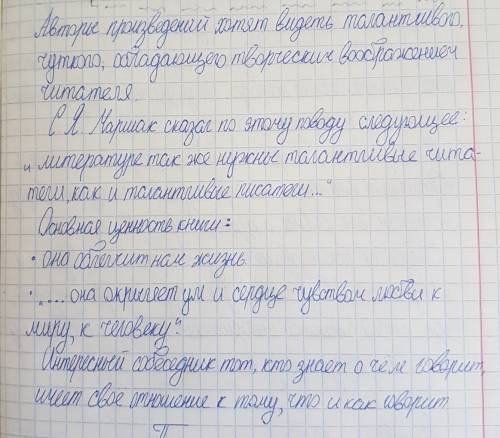 Авторы произведений хотят видеть талантливого,
чуткого, обладающего творческим воображением
читателя.
С.Я. Маршак сказал по этому поводу следующее:
„литературе так же нужны талантливые чита-
тели, как и талантливые писатели..."
Основная ценность книги:
• она облегчит нам жизнь
• „... она окриляет ум и сердце чувством любви к
миру, к человеку".
Интересный собеседник тот, кто знает о чем говорит,
имеет своё отношение к тому, что и как говорит